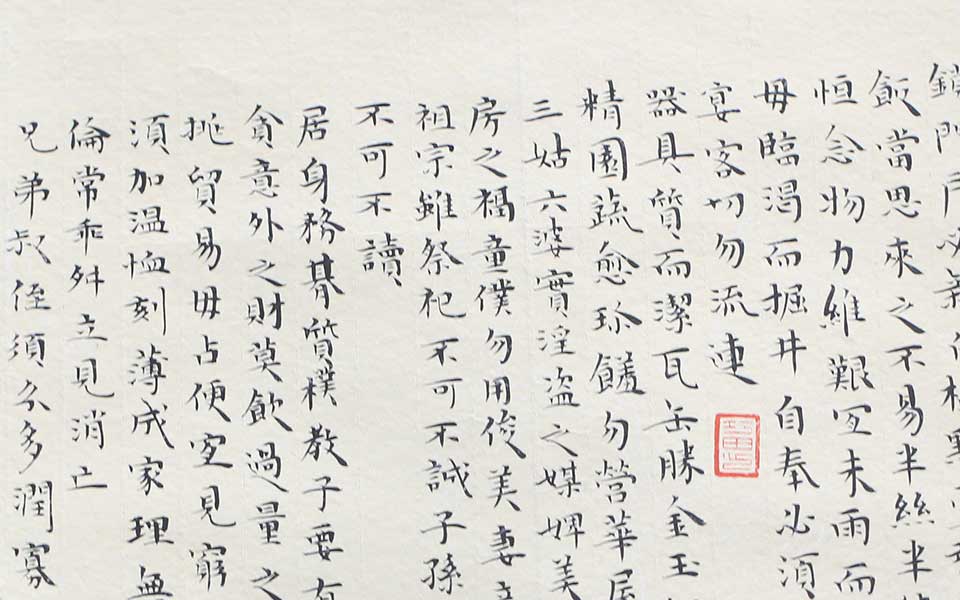 門
飯當思來之不易半絲半
恒念物力維艱宜未雨而
毋臨渴而掘井自奉必須
宴客切勿流連
器具質而潔瓦缶勝金玉
精園蔬愈珍饈勿營華屋
三姑六婆實淫盜之媒婢美
房之福童僕勿用俊美妻
祖宗雖祭祀不可不誠子孫
不可不讀
居身務朞質樸教子要有
貪意外之財莫飲過量之
挑貿易毋占便宜見窮
須加温恤刻薄成家理無
倫常乖舛立見消亡
兄弟叔侄須分多潤寡